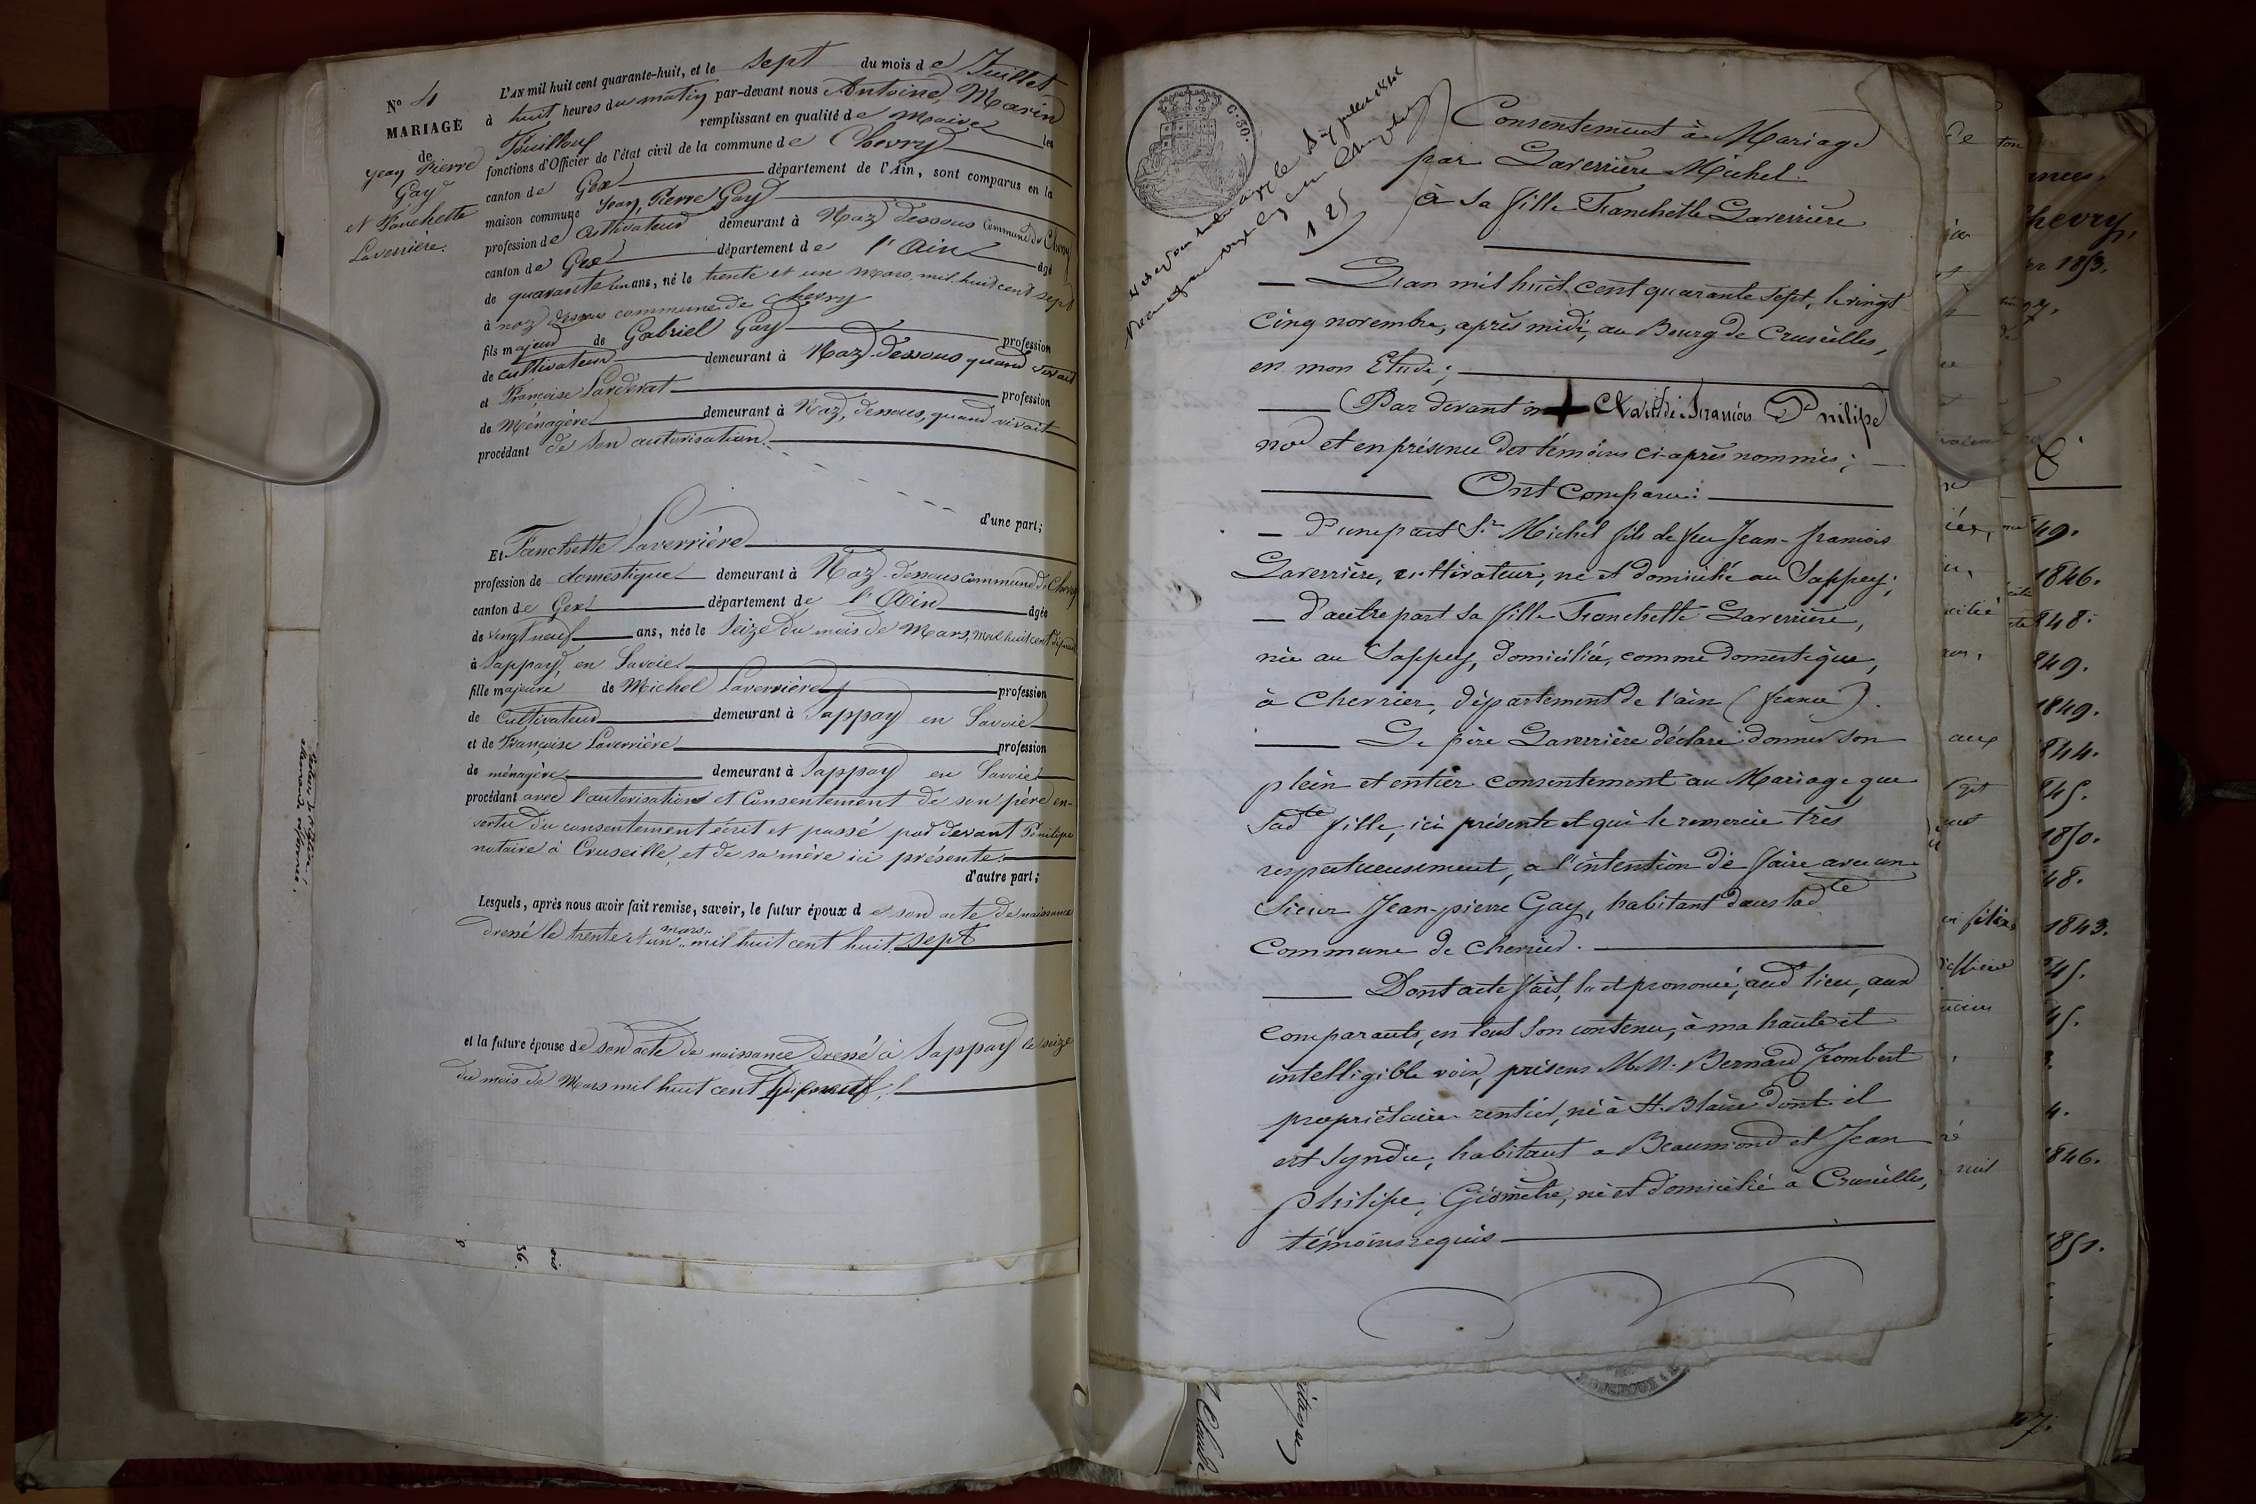 N° 4
MARIAGE
de
Jean Pierre
Gay
et Fanchette
Laverrière.
L'AN mil huit cent quarante-huit, et le sept du mois de Juillet
à huit heures du matin par-devant nous Antoine, Marin
Fouilloux remplissant en qualité de Maire les
fonctions d'Officier de l'état civil de la commune de Chevry
canton de Gex département de l'Ain, sont comparus en la
maison commune Jean, Pierre Gay
profession de Cultivateur demeurant à Naz dessous Commune de Chevry
canton de Gex département de l'Ain âgé
de quarante un ans, né le trente et un mars mil huit cent sept
à naz dessous commune de Chevry
fils majeur de Gabriel Gay profession
de cultivateur demeurant à Naz-dessous quand vivait
et Françoise profession
de Ménagère demeurant à Naz, dessous, quand vivait
procédant de son autorisation.
d'une part;
Et Fanchette Laverrière
profession de domestique demeurant à Naz-dessous commune de Chevry
canton de Gex département de l'Ain âgée
de vingt neuf ans, née le seize du mois de Mars, mil huit cent dix neuf
à Sappay, en Savoie
fille majeure de Michel Laverrière profession
de Cultivateur demeurant à Sappay en Savoie
et de Françoise Laverrière profession
de ménagère demeurant à Sappay en Savoie
procédant avec l'autorisation et Consentement de son père en
vertu du consentement écrit et passé par devant Philipe
notaire à Cruseille, et de sa mère ici présente.
d'autre part;
Lesquels, après nous avoir fait remise, savoir, le futur époux d e son acte de naissance
dressé le trente et un mars mil huit cent huit sept
et la future épouse de son acte de naissance dressé à Sappay le seize
du mois de Mars mil huit cent
C. 80.
1 25
Consentement à Mariage
par Laverrière Michel
à sa fille Franchette Laverrière
L'an mil huit cent quarante sept, le vingt
cinq novembre, après midi, au Bourg de Cruseilles,
en mon Etude;
Par devant François Philipe
nore et en présence des témoins ci-après nommés;
Ont comparu:
d'une part Sr Michel fils de feu Jean-françois
Laverrière, cultivateur, né et domicilié au Sappey;
d'autre part sa fille Franchette Laverrière,
née au Sappey, domiciliée, comme domestique,
à Chevrier, département de l'ain (france).
Le père Laverrière déclare donner son
plein et entier consentement au Mariage que
sadte fille, ici présente et qui le remercie très
respectueusement, a l'intention de faire avec un
Sieur Jean-pierre Gay, habitant dans ladte
Commune de Chevrier.
Dont acte fait, lu et prononcé, aud lieu, aux
comparants, en tout son contenu, à ma haute et
intelligible voix, présens M.M. Bernard Zombert
propriétaire rentier, né à St. Blaise dont il
est syndic, habitant a Beaumond et Jean
Philipe, Géomètre, né et domicilié à Cruseilles,
témoins requis